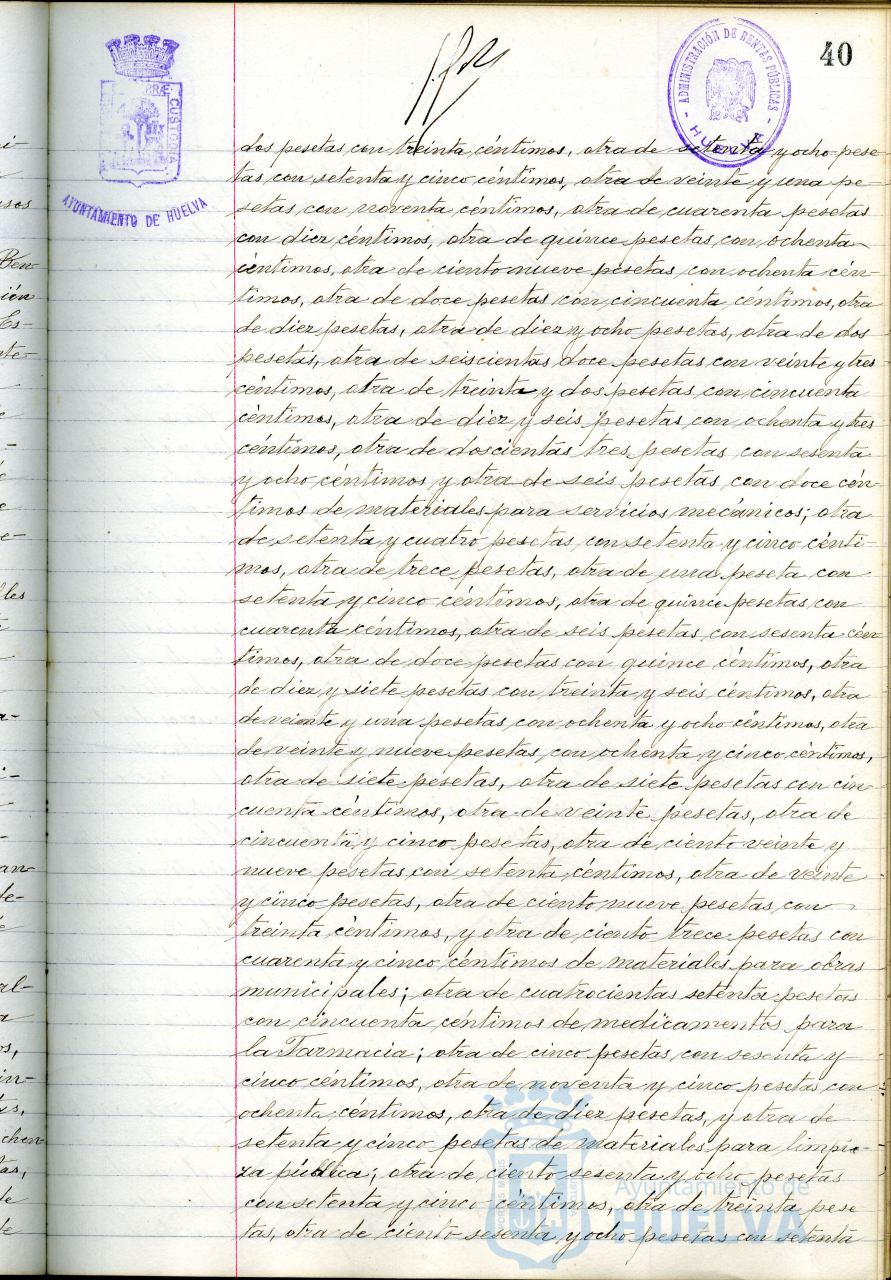 40
ADMINISTRACIÓN DE RENTAS PÚBLICAS
HUELVA
CUSTODIA
AYUNTAMIENTO DE HUELVA
dos pesetas con treinta céntimos, otra de setenta y ocho pese-
tas con setenta y cinco céntimos, otra de veinte y una pe-
setas con noventa céntimos, otra de cuarenta pesetas
con diez céntimos, otra de quince pesetas con ochenta
céntimos, otra de ciento nueve pesetas con ochenta cén-
timos, otra de doce pesetas con cincuenta céntimos, otra
de diez pesetas, otra de diez y ocho pesetas, otra de dos
pesetas, otra de seiscientas doce pesetas con veinte y tres
céntimos, otra de treinta y dos pesetas con cincuenta
céntimos, otra de diez y seis pesetas con ochenta y tres
céntimos, otra de doscientas tres pesetas con sesenta
y ocho céntimos y otra de seis pesetas con doce cén-
timos de materiales para servicios mecánicos; otra
de setenta y cuatro pesetas con setenta y cinco cénti-
mos, otra de trece pesetas, otra de una peseta con
setenta y cinco céntimos, otra de quince pesetas con
cuarenta céntimos, otra de seis pesetas con sesenta cén-
timos, otra de doce pesetas con quince céntimos, otra
de diez y siete pesetas con treinta y seis céntimos, otra
de veinte y una pesetas con ochenta y ocho céntimos, otra
de veinte y nueve pesetas con ochenta y cinco céntimos,
otra de siete pesetas, otra de siete pesetas con cin-
cuenta céntimos, otra de veinte pesetas, otra de
cincuenta y cinco pesetas, otra de ciento veinte y
nueve pesetas con setenta céntimos, otra de veinte
y cinco pesetas, otra de ciento nueve pesetas con
treinta céntimos, y otra de ciento trece pesetas con
cuarenta y cinco céntimos de materiales para obras
municipales; otra de cuatrocientas setenta pesetas
con cincuenta céntimos de medicamentos para
la Farmacia; otra de cinco pesetas con sesenta y
cinco céntimos, otra de noventa y cinco pesetas con
ochenta céntimos, otra de diez pesetas, y otra de
setenta y cinco pesetas de materiales para limpie-
za pública; otra de ciento sesenta y ocho pesetas
con setenta y cinco céntimos, otra de treinta pese
tas, otra de ciento sesenta y ocho pesetas con setenta
Ayuntamiento de
HUELVA